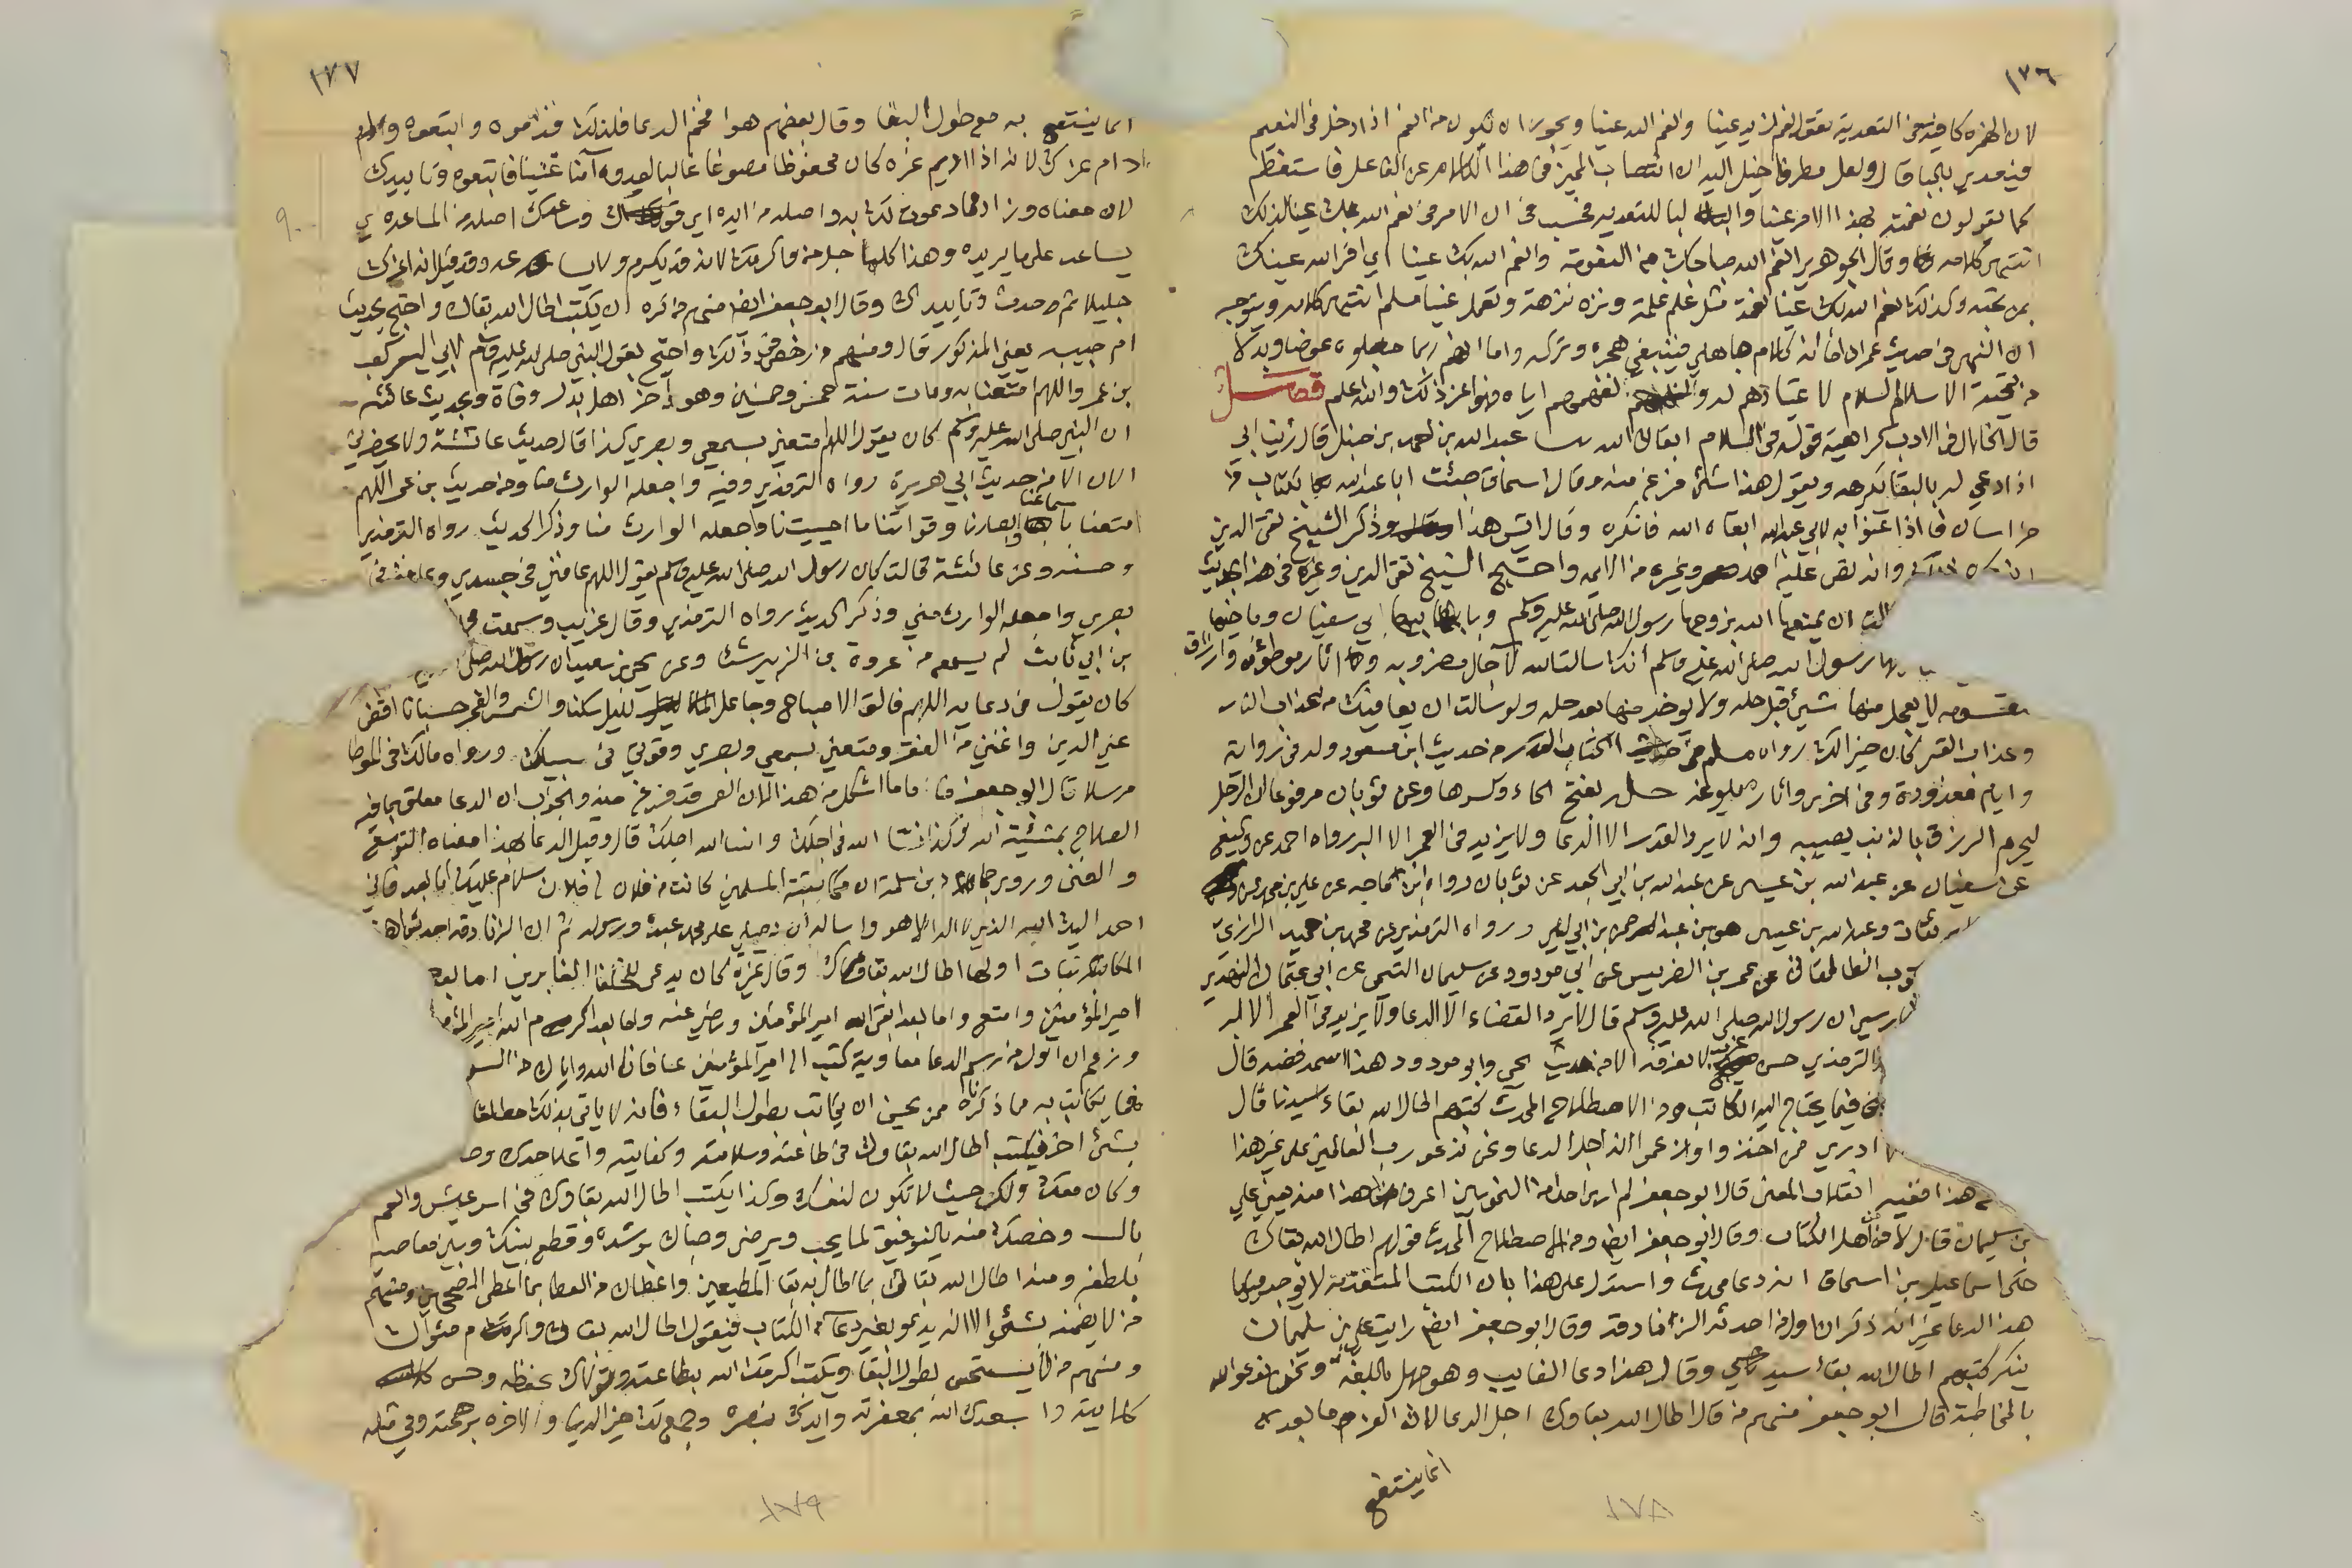 ١٧٦
لان الهمزة كافية في التعدية تقول نعم زيد عينا وانعم الله عينا ويجوز ان يكون من انعم اذا دخل في النعيم
فيعدى بالبا قال ولعل مطرفا خيل اليه ان انتصاب المميز في هذا الكلام عن الفاعل فاستعظم
كما تقولون نعمت بهذا الامر عينا والبا للتعدية فحسب ان الامر في نعم الله بك عينا كذلك
انتهى كلامه وقال الجوهري انعم الله صباحك من النعومة وانعم الله بك عينا اي اقر الله عينك
بمن تحبه وكذلك نعم الله بك عينا نعمة مثل غلم غلمة ونزه نزهة ونعمك عينا مثله انتهى كلامه ويتوجه
ان النهي في حديث عمران لانه كلام جاهلي فينبغي هجره وتركه واما انهم ربما جعلوه عوضا وبدلا
من تحية الاسلام السلام لاعتيادهم له والفهم اياه فنهوا عن ذلك والله اعلم فصل
قال الخلال في الادب كراهية قوله في السلام ابقاك الله عبد الله بن احمد بن حنبل قال رأيت ابي
اذا دعي له بالبقا يكرهه ويقول هذا شيء فرغ منه وقال اسحاق جئت ابا عبد الله بكتاب من
خراسان فاذا عنوانه لابي عبد الله ابقاه الله فانكره وقال ايش هذا وذكر الشيخ تقي الدين
وانه نص عليه احمد وغيره من الايمه واحتج الشيخ تقي الدين وغيره في هذا بحديث
ان يمتعها الله بزوجها رسول الله صلى الله عليه وسلم وبابيها ابي سفيان وباخيها
رسول الله صلى الله عليه وسلم انك سالت الله لآجال مضروبه واثار موطؤة وارزاق
مقسومه لا يعجل منها شيئ قبل حله ولا يوخر منها بعد حله ولو سالت ان يعافيك من عذاب النار
وعذاب القبر لكان خير الك رواه مسلم في كتاب القدر من حديث ابن مسعود وله في رواية
وايام معدودة وفي اخرى واثار مبلوغة حله بفتح الحاء وكسرها وعن ثوبان مرفوعا ان الرجل
ليحرم الرزق بالذنب يصيبه وانه لا يرد القدر الا الدعا ولا يزيد في العمر الا البر رواه احمد عن وكيع
عن سفيان عن عبد الله بن عيسى عن عبد الله بن ابي الجعد عن ثوبان رواه ابن ماجه عن علي بن محمد عن وكيع
ثقات وعبد الله بن عيسى هو بن عبد الرحمن بن ابي ليلى ورواه الترمذي عن محمد بن حميد الرازي
الطالقاني عن يحيى بن الضريس عن ابي مودود عن سليمان التيمي عن ابي عثمان النهدي
ان رسول الله صلى الله عليه وسلم قال لا يرد القضاء الا الدعا ولا يزيد في العمر الا البر
الترمذي حسن غريب لا نعرفه الا من حديث يحيى وابو مودود هذا اسمه فضه قال
فيما يحتاج اليه الكاتب ومن الاصطلاح المحدث كتبهم اطال الله بقاء سيدنا قال
ادري مم اخذ واوانزعم انه اجل الدعا ونحن ندعو رب العالمين على غير هذا
هذا ففيه انقلاب المعنى قال ابو جعفر لم ار احدا من النحويين اعرف هذا منه يعني علي
بن سليمان قال لا من اهل الكتاب وقال ابو جعفر ايضا ومن الاصطلاح المحدث قولهم اطال الله بقاك
حكى اسماعيل بن اسحاق انه دعا محدث واستدل على هذا بان الكتب المتقدمة لا يوجد فيها
هذا الدعا غير انه ذكر ان اول من احدثه الزنادقة وقال ابو جعفر ايضا رايت علي بن سليمان
ينكر كتبهم اطال الله بقاء سيدي وقال هذا دعا الغايب وهو جهل باللغة ونحن ندعو الله
بالمخاطبة قال ابو جعفر منهم من قال اطال الله بقاوك اجل الدعا لانه العز وما بعده
انما ينتفع
١٧٨
١٧٧
انما ينتفع به مع طول البقا وقال بعضهم هوا فخم الدعا فلذلك قدموه واتبعوه
ادام عزك لانه اذا اديم عزه كان محفوظا مصونا غالبا لعدوه آمنا غنيا فاتبعوه وتاييدك
لان معناه وزاد مما دعوت لك به واصله من ايده اي قواه وساعدك اصله من المساعدة اي
يساعد على ما يريده وهذا كله اجل من واكرمك لانه قد يكرم ولا وقد قيل ان اعزك
جليلا ثم حدث وتاييدك وقال ابو جعفر ايضا منهم من كره ان يكتب اطال الله بقاك واحتج بحديث
ام حبيبه يعني المذكور قال ومنهم من رخص في ذلك واحتج بقول النبي صلى الله عليه وسلم لابي اليسر كعب
بن عمرو اللهم امتعنا به ومات سنة خمس وخمسين وهو اخر اهل بدر وفاة وبحديث عائشه
ان النبي صلى الله عليه وسلم كان يقول اللهم متعني بسمعي وبصري كذا قال حديث عائشة ولا يحضرني
الان الا من حديث ابي هريرة رواه الترمذي وفيه واجعله الوارث منا ومن حديث بن عمر اللهم
امتعنا باسماعنا وابصارنا وقواتنا ما احييتنا واجعله الوارث منا وذكر الحديث رواه الترمذي
وحسنه وعن عائشة قالت كان رسول الله صلى الله عليه وسلم يقول اللهم عافني في جسدي وعافني في
بصري واجعله الوارث مني وذكر الحديث رواه الترمذي وقال غريب وسمعت
بن ابي ثابت لم يسمع من عروة بن الزبير شيئا وعن يحيى بن سعيد ان رسول الله صلى
كان يقول في دعايه اللهم فالق الاصباح وجاعل الليل سكنا والشمس والقمر حسبانا اقض
عني الدين واغنني من الفقر ومتعني بسمعي وبصري وقوتي في سبيلك ورواه مالك في الموطا
مرسلا قال ابو جعفر فاما ما اشكل من هذا لان العمر قد فرغ منه والجواب ان الدعا معلق بما فيه
الصلاح بمشيئة الله فكذا انسا الله في اجلك وانسا الله اجلك قال وقيل الدعا بهذا معناه التوسعة
والغنى وروي حماد بن سلمة ان مكاتبة المسلمين كانت من فلان الى فلان سلام عليك اما بعد فاني
احمد اليك الله الذي لا اله الا هو واساله ان يصلي على محمد عبده ورسوله ثم ان الزنادقة احدثوا هذه
المكاتبات اولها اطال الله بقاك وقال غيره كان يدعى للخلفا الغابرين اما بعد
امير المؤمنين وامتع واما بعد ابقى الله امير المؤمنين ورضي عنه واما بعد اكرم الله امير المؤمنين
وزعم ان اول من رسم الدعا معاوية كتب الى امير المؤمنين عافانا الله واياك من السو
فما يكاتب به ما ذكرناه ممن يحسن ان يكاتب بطول البقاء فانه لا ياتي بذلك مطلقا
بشيء اخر فيكتب اطال الله بقاوك في طاعته وسلامته وكفايته واعلا جدك
وكان معك ولك حيث لا تكون لنفسك وكذا يكتب اطال الله بقاوك في اسر عيش وانعم
بال وخصك منه بالتوفيق لما يحب ويرضى وحباك برشده وقطع بينك وبين معاصيه
بلطفه ومنه اطال الله بقاك بما اطال به بقا المطيعين واعطاك من العطا بما اعطى الصالحين ومنهم
من لا يضمنه بشيء الا انه يدعو بغير دعا الكتاب فيقول اطال الله بقاك واكرم مثواك
ومنهم من لا يستحسن بطول البقا ويكتب اكرمك الله بطاعته وتولاك بحفظه وحسن
كلايته واسعدك الله بمغفرته وايدك بنصره وجمع لك خير الدنيا والاخره برحمته وفي مثله
١٧٩